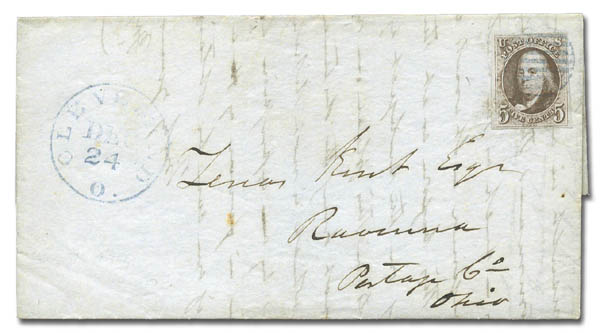 POST OFFICE
FIVE CENTS
5 5
CLEVELAND
DEC
24
O.
Zenas Kent Esqr
Ravenna
Portage Co
Ohio